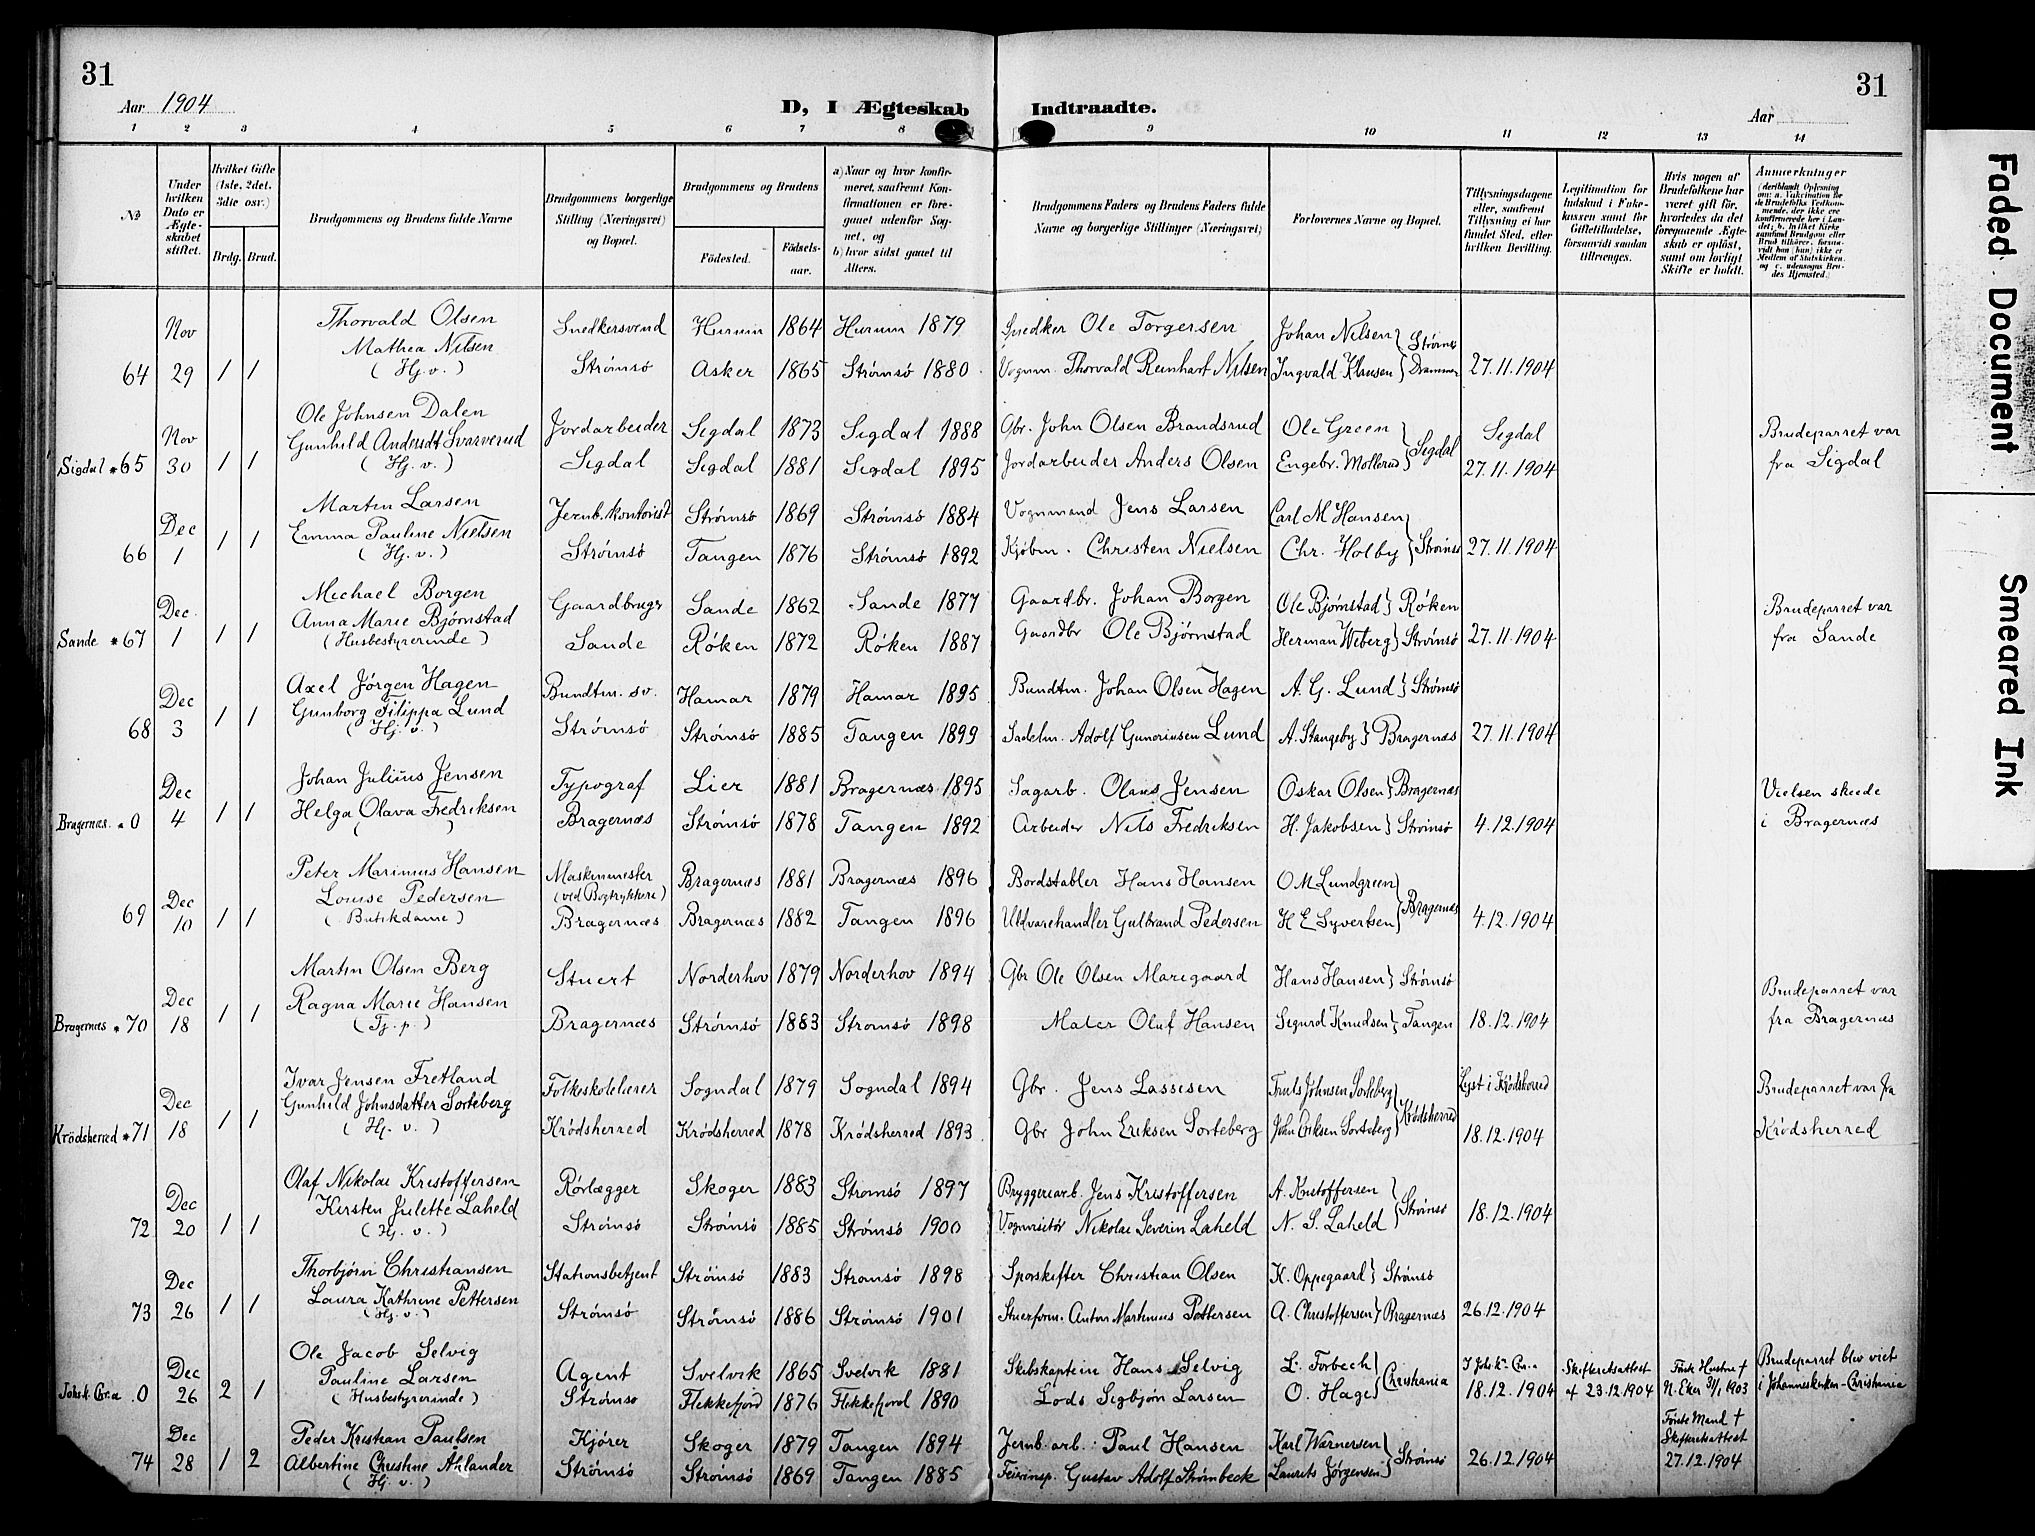 31
31
Aar 1904
D, I Ægteskab Indtraadte.
Aar
1 2 3 4 5 6 7 8 9 10 11 12 13 14
No
Under hvilken Dato er Ægteskabet stiftet.
Hvilket Gifte (1ste, 2det. 3die osv.)
Brdg. Brud.
Brudgommens og Brudens fulde Navne
Brudgommens borgerlige Stilling (Næringsvei) og Bopæl.
Brudgommens og Brudens
Fødested. Fødselsaar.
a) Naar og hvor konfirmeret, saafremt Konfirmationen er foregaaet udenfor Sognet, og
b) hvor sidst gaaet til Alters.
Brudgommens Faders og Brudens Faders fulde Navne og borgerlige Stillinger (Næringsvei)
Forlovernes Navne og Bopæl.
Tillysningsdagene eller, saafremt Tillysning ei har fundet Sted, efter hvilken Bevilling.
Legitimation for Indskud i Enkekassen samt for Giftetilladelse, forsaavidt saadan tiltrænges.
Hvis nogen af Brudefolkene har været gift før, hvorledes da det foregaaende Ægteskab er opløst, samt om lovligt Skifte er holdt.
Anmerkninger
Nov Thorvald Olsen Snedkersvend Hurum 1864 Hurum 1879 Snedker Ole Torgersen Johan Nilsen } Strømsø
64 29 1 1 Mathea Nilsen (Hj. v.) Strømsø Asker 1865 Strømsø 1880 Vognm. Thorvald Reinhart Nilsen Ingvald Klausen } Drammen 27.11.1904
Nov Ole Johnsen Dalen Jordarbeider Sigdal 1873 Sigdal 1888 Gbr. John Olsen Brandsrud Ole Green } Sigdal Sigdal Brudeparret var
Sigdal * 65 30 1 1 Gunhild Andersdt Svarverud (Hj. v.) Sigdal Sigdal 1881 Sigdal 1895 Jordarbeider Anders Olsen Engebr. Møllerud 27.11.1904 fra Sigdal
Dec Martin Larsen Jernb. kontorist Strømsø 1869 Strømsø 1884 Vognmand Jens Larsen Carl M Hansen } Strømsø
66 1 1 1 Emma Pauline Nielsen (Hj. v.) Strømsø Tangen 1876 Strømsø 1892 Kjøbm. Christen Nielsen Chr. Holby 27.11.1904
Dec. Michael Borgen Gaardbruger Sande 1862 Sande 1877 Gaardbr. Johan Borgen Ole Bjørnstad } Røken Brudeparret var
Sande * 67 1 1 1 Anna Marie Bjørnstad (Husbestyrerinde) Sande Røken 1872 Røken 1887 Gaardbr Ole Bjørnstad Herman Weberg } Strømsø 27.11.1904 fra Sande
Dec Axel Jørgen Hagen Bundtm. sv. Hamar 1879 Hamar 1895 Bundtm. Johan Olsen Hagen A. G. Lund } Strømsø
68 3 1 1 Gunborg Filippa Lund (Hj. v.) Strømsø Strømsø 1885 Tangen 1899 Sadelm. Adolf Gunoriusen Lund A. Stangeby } Bragernæs 27.11.1904
Dec Johan Julius Jensen Typograf Lier 1881 Bragernæs 1895 Sagarb. Olaus Jensen Oskar Olsen } Bragernæs Vielsen skeede
Bragernæs * 0 4 1 1 Helga Olava Fredriksen ( ) Bragernæs Strømsø 1878 Tangen 1892 Arbeider Nils Fredriksen H. Jakobsen } Strømsø 4.12.1904 i Bragernæs
Dec Peter Marinius Hansen Maskinmester (ved Bogtrykkere) Bragernæs 1881 Bragernæs 1896 Bordstabler Hans Hansen O M Lundgreen } Bragernæs
69 10 1 1 Louise Pedersen (Butikdame) Bragernæs Bragernæs 1882 Tangen 1896 Uldvarehandler Gulbrand Pedersen H E Syvertsen 4.12.1904
Dec Martin Olsen Berg Stuert Norderhov 1879 Norderhov 1894 Gbr Ole Olsen Moregaard Hans Hansen } Strømsø Brudeparret var
Bragernæs * 70 18 1 1 Ragna Marie Hansen (Tj. p.) Bragernæs Strømsø 1883 Strømsø 1898 Maler Oluf Hansen Sigurd Knudsen } Tangen 18.12.1904 fra Bragernæs
Dec Ivar Jensen Fretland Folkeskolelærer Sogndal 1879 Sogndal 1894 Gbr. Jens Lassesen Truls Johnsen Sorteberg } Krødsherred Lyst i Krødsherred Brudeparret var fra
Krødsherred * 71 18 1 1 Gunhild Johnsdatter Sorteberg (Hj. v.) Krødsherred Krødsherred 1878 Krødsherred 1893 Gbr John Eriksen Sorteberg John Eriksen Sorteberg 18.12.1904 Krødsherred
Dec Olaf Nikolai Kristoffersen Rørlægger Skoger 1883 Strømsø 1897 Bryggeriarb. Jens Kristoffersen A. Kristoffersen } Strømsø
72 20 1 1 Kirsten Julette Laheld (Hj. v.) Strømsø Strømsø 1885 Strømsø 1900 Vognvisitør Nikolai Severin Laheld N. S. Laheld 18.12.1904
Dec Thorbjørn Christiansen Stationsbetjent Strømsø 1883 Strømsø 1898 Sporskifter Christian Olsen K. Oppegaard } Strømsø
73 26 1 1 Laura Kathrine Pettersen (Hj. v.) Strømsø Strømsø 1886 Strømsø 1901 Stuerform. Anton Martinius Pettersen A. Christoffersen } Bragernæs 26.12.1904
Dec Ole Jacob Selvig Agent Svelvik 1865 Svelvik 1881 Skibskaptein Hans Selvig L. Forbech } Christiania I Johs k. Chr.a Skifteretsattest Første Hustru † Brudeparret blev viet
Johs. k. Chr.a 0 26 2 1 Pauline Larsen (Husbestyrerinde) Strømsø Flekkefjord 1876 Flekkefjord 1890 Lods Sigbjørn Larsen O. Hage 18.12.1904 af 23.12.1904 N. Eker 31/1 1903 i Johanneskirken-Christiania
Dec Peder Kristian Paulsen Kjører Skoger 1879 Tangen 1894 Jernb. arb. Paul Hansen Karl Warnersen } Strømsø Første Mand † Skifteretsattest
74 28 1 2 Albertine Christine Åhlander (Hj. v.) Strømsø Strømsø 1869 Tangen 1885 Feierinsp. Gustav Adolf Strømbeck Laurits Jørgensen 26.12.1904 27.12.1904
Faded Document
Smeared Ink